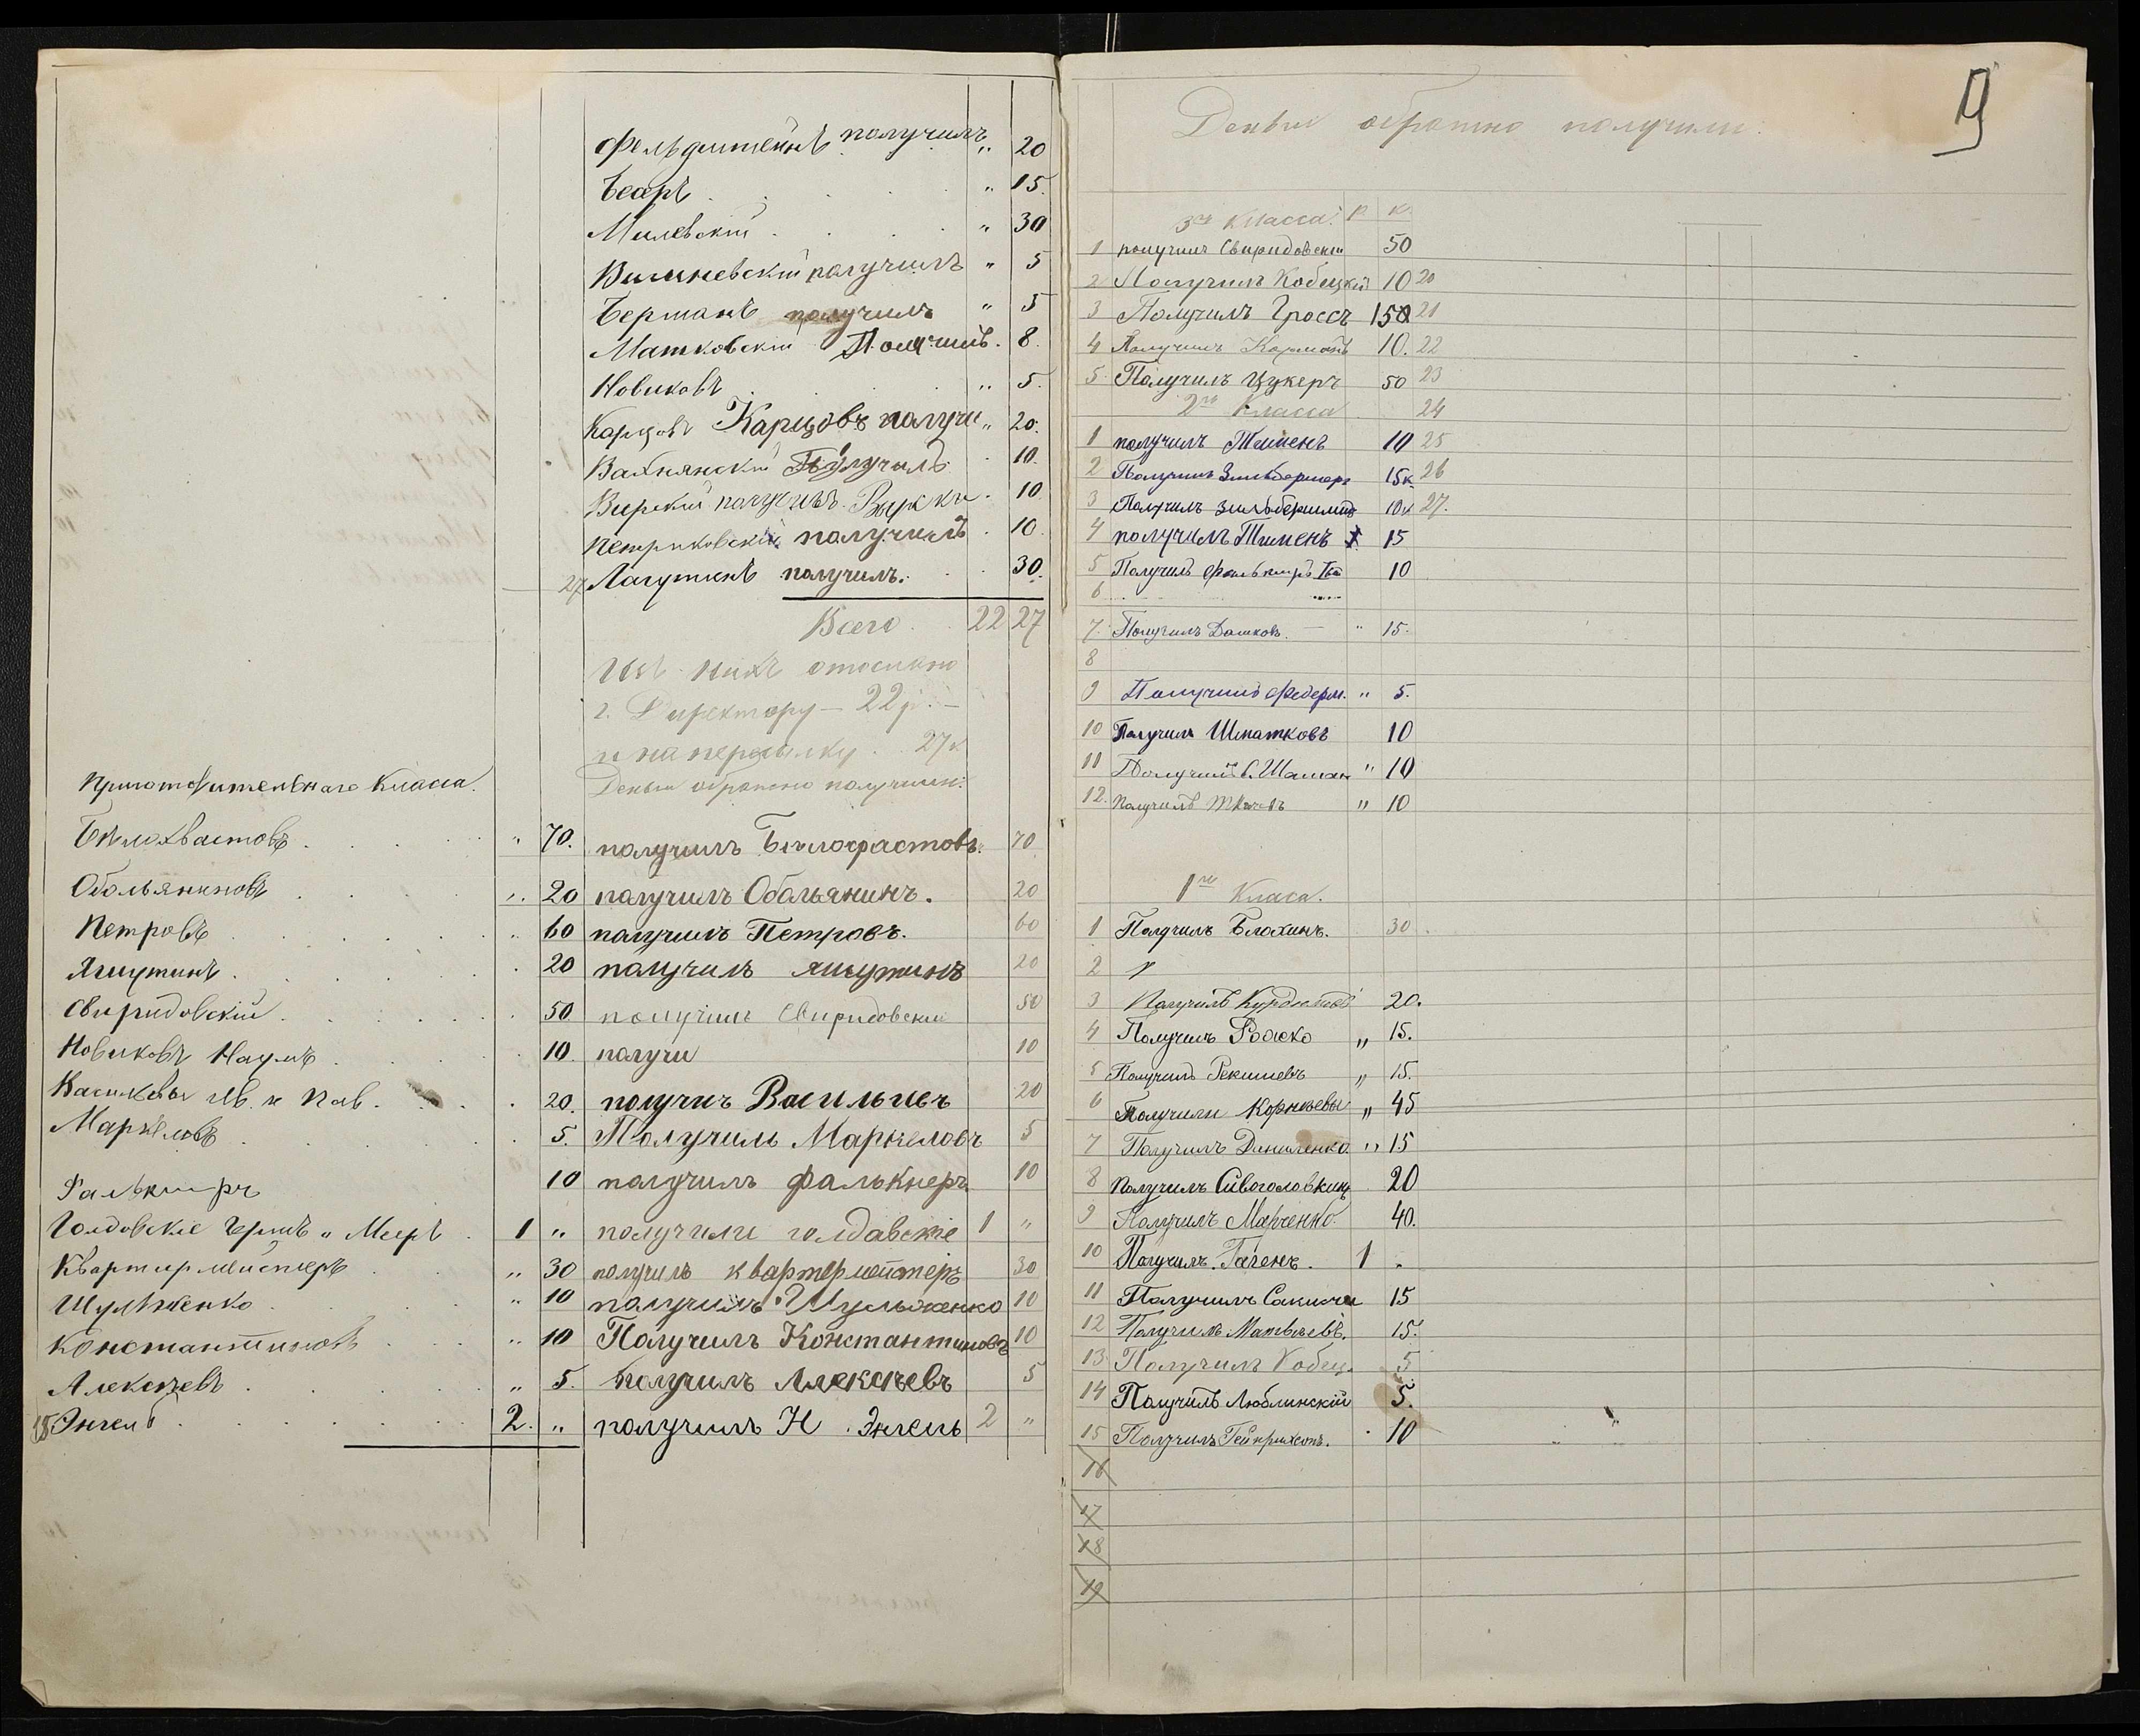 Фельдштейнъ получилъ „ 20
Беаръ . . . „ 15.
Милевскій . . . „ 30
Вишневскій получилъ „ 5
Берманъ получилъ „ 5
Матковскій Получилъ . 8.
Новиковъ . . . „ 5.
Карцовъ Карцовъ получи „ 20.
Вахнянскій Получилъ . 10.
Вирскій получилъ . 10.
Петриковскій получилъ . 10.
27 Лагутинъ получилъ. . 30.
Всего . . 22 27
Изъ нихъ отослано
г. Директору — 22 р. —
и на пересылку . . 27 к
Деньги обратно получили:
Приготовительнаго Класса.
Бѣлохвастовъ . . . „ 70. получилъ 70
Обольяниновъ . . . „ 20 получилъ Обольянинъ. 20
Петровъ . . . „ 60 получилъ Петровъ. 60
Ягнутинъ . . . 20 получилъ 20
Свиридовскій . . . 50 получилъ Свиридовскій 50
Новиковъ Наумъ . . . 10. получи 10
Васильевы Ив. и Пав. . . . 20. получил Васильевъ 20
Маркеловъ . . . 5. Получилъ Маркеловъ 5
Фалькнеръ 10 получилъ Фалькнеръ 10
Голдовскіе и Мееръ . 1 „ получили голдавскіе 1 „
Квартирмейстеръ . . „ 30 получилъ квартермейстеръ 30
Шульженко . . . „ 10 получилъ Шульженко 10
Константиновъ . . . „ 10 Получилъ Константиновъ 10
Алексѣевъ . . . „ 5. Получилъ Алексѣевъ 5
Энгель . . . 2. „ получилъ Н. Энгель 2 „
Деньги обратно получили.
3го Класса. р. к.
1 получилъ Свиридовскій 50
2 Получилъ Кобецкій 10 20
3 Получилъ Гроссъ 150 21
4 Получилъ 10. 22
5. Получилъ Цукеръ 50 23
2го Класса 24
1 получилъ Тименъ 10 25
2 Получилъ 15к 26
3 Получилъ 10к 27.
4 получилъ Тименъ 15
5 Получилъ Фалькнеръ 10
6
7. Получилъ Дашковъ. — „ 15.
8
9 Получилъ Федерм. „ 5.
10 Получилъ Шпатковъ 10
11 Получилъ С. Шаман „ 10
12. Получилъ Ткачевъ „ 10
1го Класа.
1 Получилъ Блохинъ. 30.
2
3 Получилъ 20.
4 Получилъ „ 15.
5 Получилъ „ 15.
6 Получили Корнѣевы „ 45
7 Получилъ Даниленко. „ 15
8 Получилъ Сивоголовкинъ 20
9 Получилъ Марченко. 40.
10 Получилъ. Гагенъ. 1 „
11 Получилъ 15
12 Получилъ Матвѣевъ. 15.
13 Получилъ Кобец. 5
14 Получилъ Люблинскій 5.
15 Получилъ Гейнрихсонъ. . 10
16
17
18
19